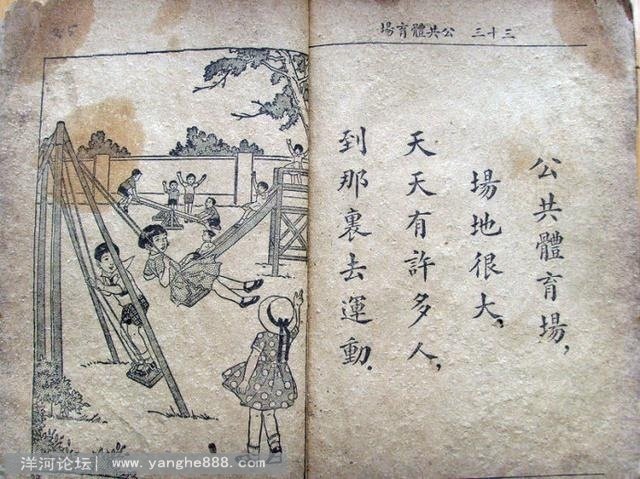 三十三 公共體育場
公共體育場，
場地很大，
天天有許多人，
到那裏去運動．
洋河论坛 www.yanghe888.com